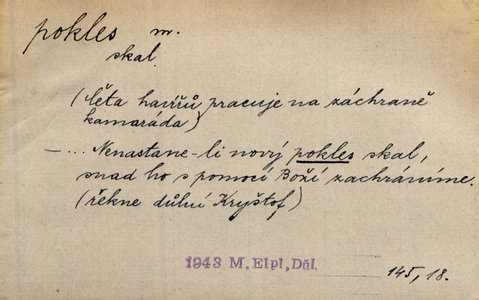 pokles m.
skal.
(četa havířů pracuje na záchraně
kamaráda)
— ... Nenastane-li nový pokles skal,
snad ho s pomocí Boží zachráníme.
(řekne důlní Kryštof)
1943 M. Elpl, Důl.
145, 18.